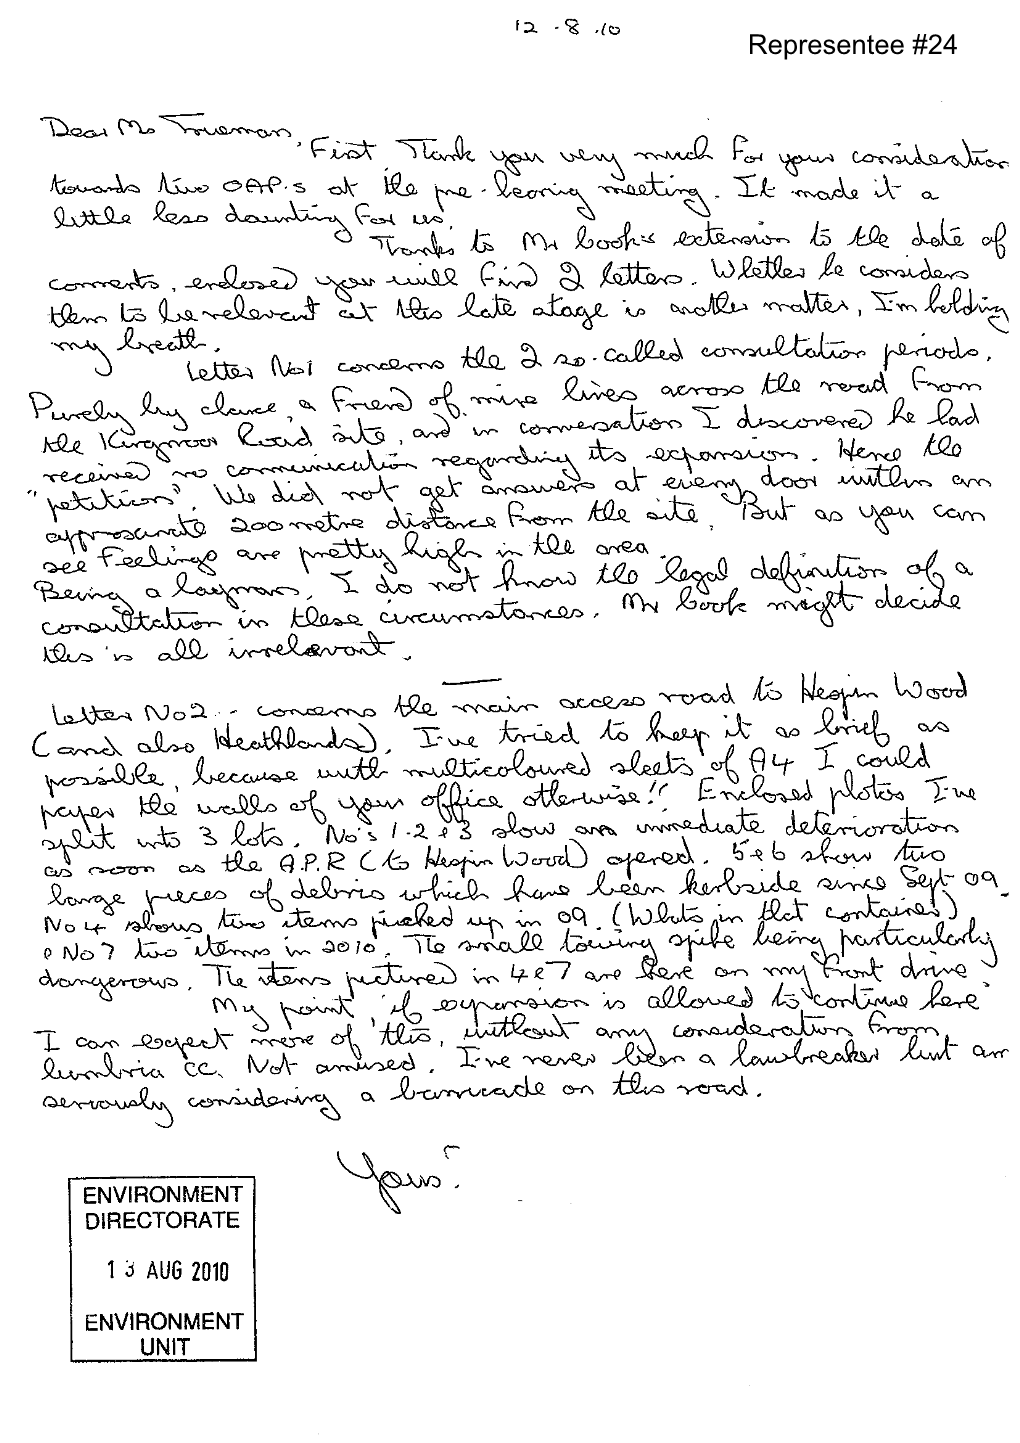 12.8.10
Representee #24
Dear Ms Trueman,
First, Thank you very much for your consideration
towards two OAP.s at the pre-hearing meeting. It made it a
little less daunting for us.
Thanks to Mr Cook's extension to the date of
comments, enclosed you will find 2 letters. Whether he considers
them to be relevant at this late stage is another matter, I'm holding
my breath.
Letter No1 concerns the 2 so-called consultation periods.
Purely by chance, a friend of mine lives across the road from
the Kingmoor Road site, and in conversation I discovered he had
received no communication regarding its expansion. Hence the
"petition". We did not get answers at every door within an
approximate 200 metre distance from the site. But as you can
see feelings are pretty high in the area.
Being a layman, I do not know the legal definition of a
consultation in these circumstances. Mr Cook might decide
this is all irrelevant.
Letter No2 - concerns the main access road to Hespin Wood
(and also Heathlands). I've tried to keep it as brief as
possible, because with multicoloured sheets of A4 I could
paper the walls of your office otherwise!! Enclosed photos I've
split into 3 lots. No's 1.2 & 3 show an immediate deterioration
as soon as the A.P.R (to Hespin Wood) opened. 5 & 6 show two
large pieces of debris which have been kerbside since Sept 09.
No 4 shows two items picked up in 09. (Whats in that container)
& No 7 two items in 2010. The small towing spike being particularly
dangerous. The items pictured in 4 & 7 are here on my front drive
My point, if expansion is allowed to continue here
I can expect more of this, without any consideration from
Cumbria CC. Not amused. I've never been a lawbreaker but am
seriously considering a barricade on this road.
Yours.
ENVIRONMENT
DIRECTORATE
13 AUG 2010
ENVIRONMENT
UNIT